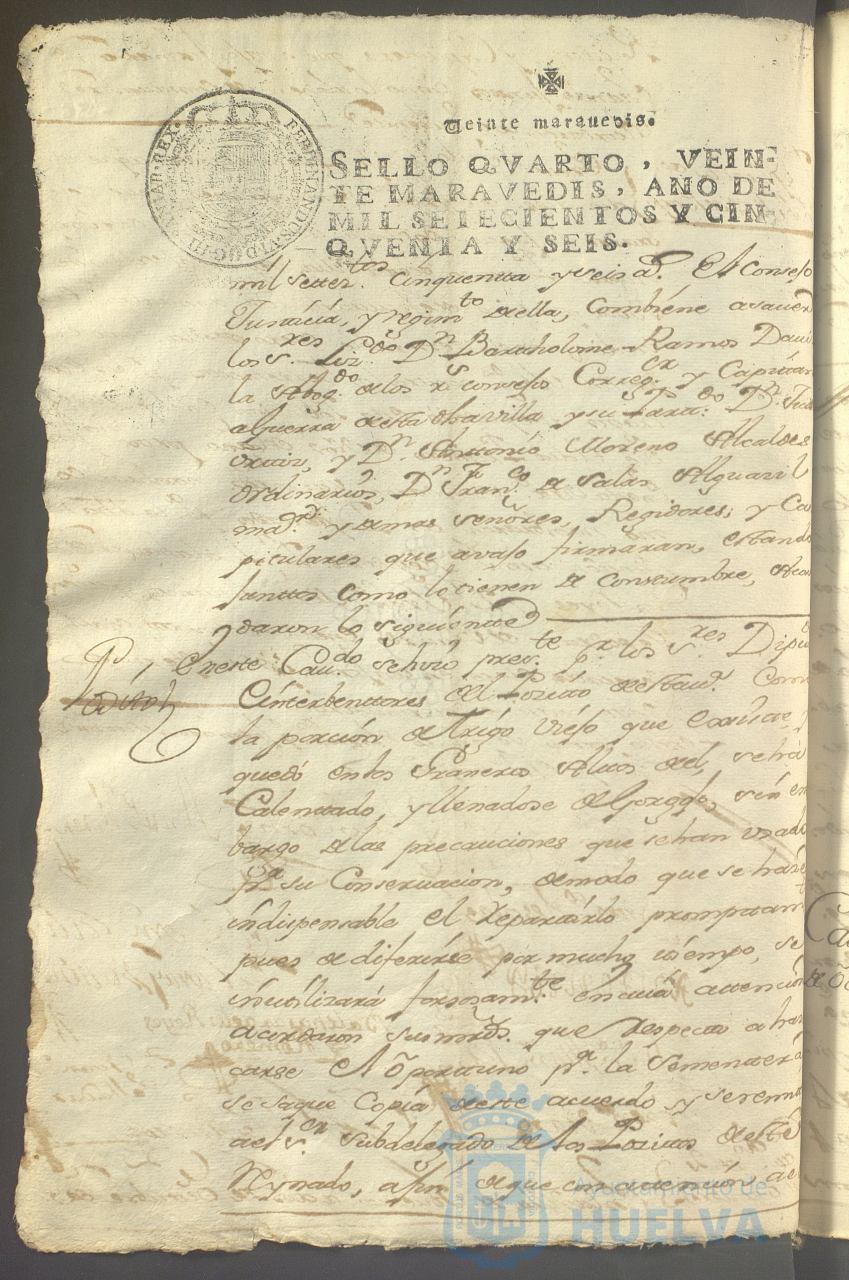 Veinte marauedis.
SELLO QVARTO, VEIN-
TE MARAVEDIS, AÑO DE
MIL SETECIENTOS Y CIN-
QVENTA Y SEIS.
FERDINANDUS VI D G HISPANIAR REX
mil settez.tos cinquentta y seis a.s El Consejo
Justicia, y regim.to de ella, combiene a sauer
los s.res Liz.do D.n Bartholome Ramos Daui
la Abog.do de los r.s consejos Correg.or y Capitan
a Guerra de esta dha villa y su
y D.n Antonio Moreno Alcaldes
Ordinarios, D.n Fran.co de Salas Alguazil
ma.or y demas señores, Regidores, y Ca
pitulares que auajo firmaran, estando
Junttos como lo tienen de constumbre, Acor
daron lo siguiente
Posito
En este Cau.do se hizo pres.te p.r los s.res Dipu
e interbentores del Posito de esta v.a Como
la porcion de trigo viejo que
quedo en los Graneros Altos de el, se ha
Calentado, y llenadose de Gorgojo, sin em
bargo de las precauciones que se han usado
p.a su Conseruacion, de modo que se haze
indispensable el repartirlo promptam.te
pues de diferirse por mucho tiempo, se
inutilizará forsosam.te en cuia attencion
acordaron sus mrds. que respecto a ha
llarse el oportuno p.a la sementera
se saque Copia de este acuerdo y se remita
al s.or subdelegado de los Positos de este
Reynado, a fin de que con atencion a
Ayuntamiento de
HUELVA